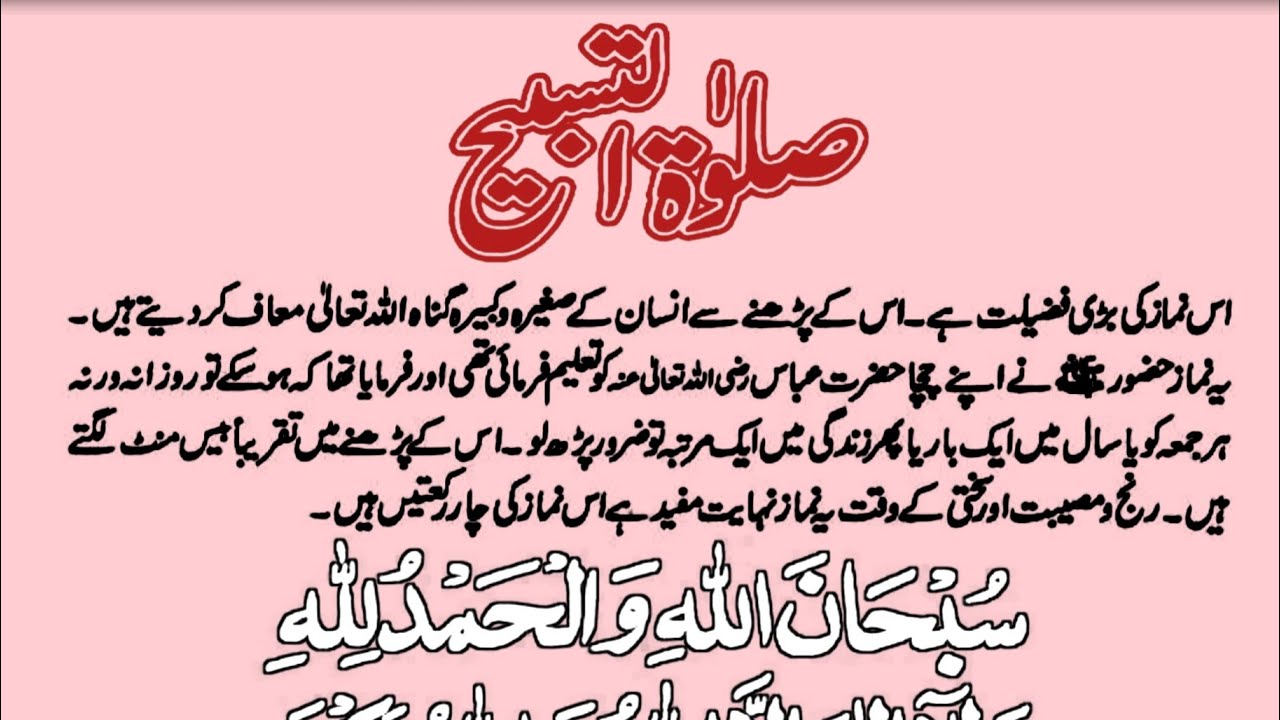 صلوٰۃ التسبیح
اس نماز کی بڑی فضیلت ہے۔ اس کے پڑھنے سے انسان کے صغیرہ و کبیرہ گناہ اللہ تعالیٰ معاف کر دیتے ہیں۔
یہ نماز حضور ﷺ نے اپنے چچا حضرت عباس رضی اللہ تعالیٰ عنہ کو تعلیم فرمائی تھی اور فرمایا تھا کہ ہو سکے تو روزانہ ورنہ
ہر جمعہ کو یا سال میں ایک بار یا پھر زندگی میں ایک مرتبہ تو ضرور پڑھ لو۔ اس کے پڑھنے میں تقریباً بیس منٹ لگتے
ہیں۔ رنج و مصیبت اور سختی کے وقت یہ نماز نہایت مفید ہے اس نماز کی چار رکعتیں ہیں۔
سُبْحَانَ اللّٰهِ وَالْحَمْدُ لِلّٰهِ